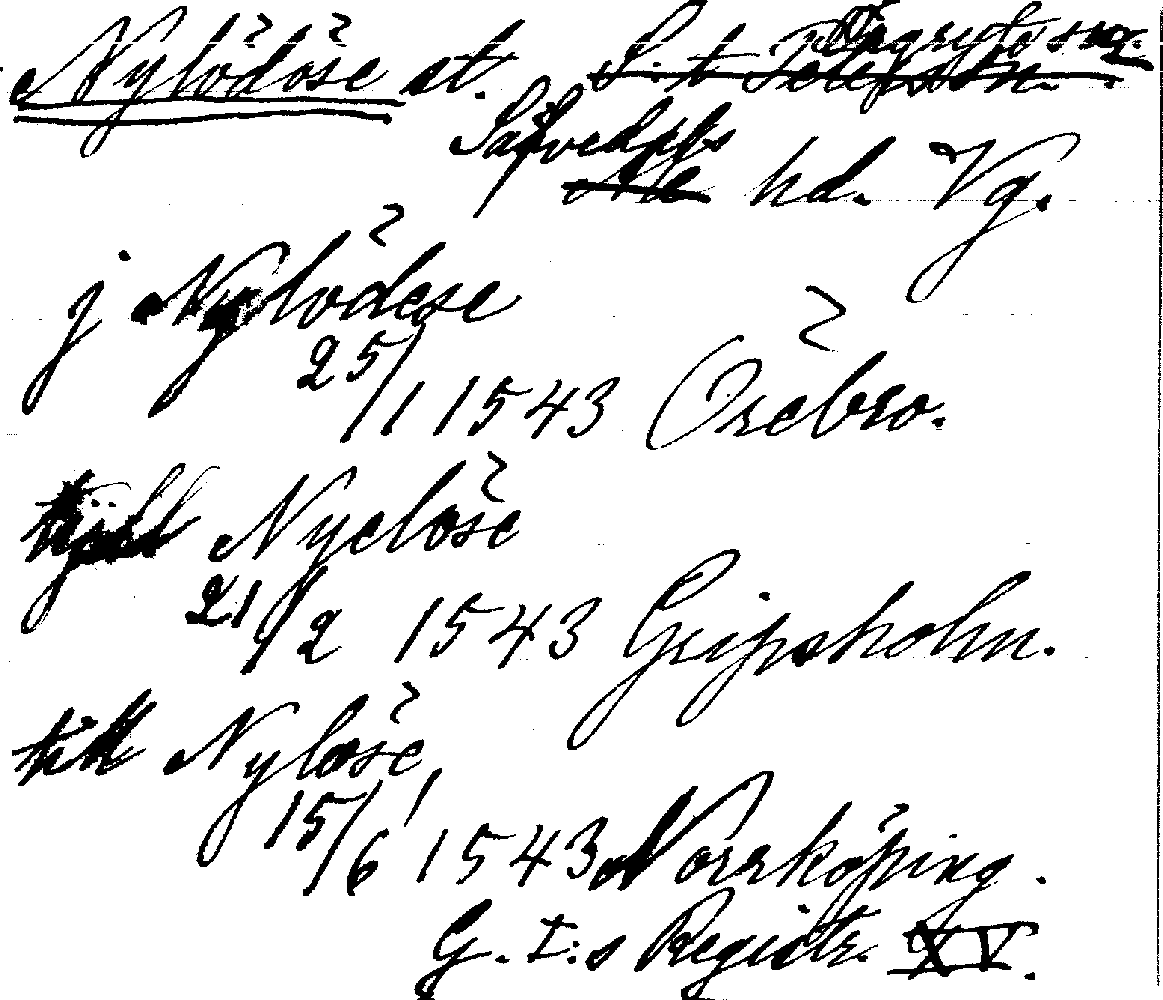 Nylödöse st. Örgryte sn.
S:t Petersson.
Säfvedals
Ale hd. Vg.
j Nylödese
25/1 1543 Örebro.
till Nyelöse
21/2 1543 Gripsholm.
till Nylöse
15/6 1543 Norrköping.
G. I:s Registr. XV.